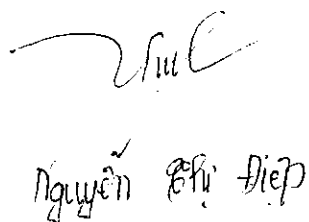 Nguyễn Thị Điệp